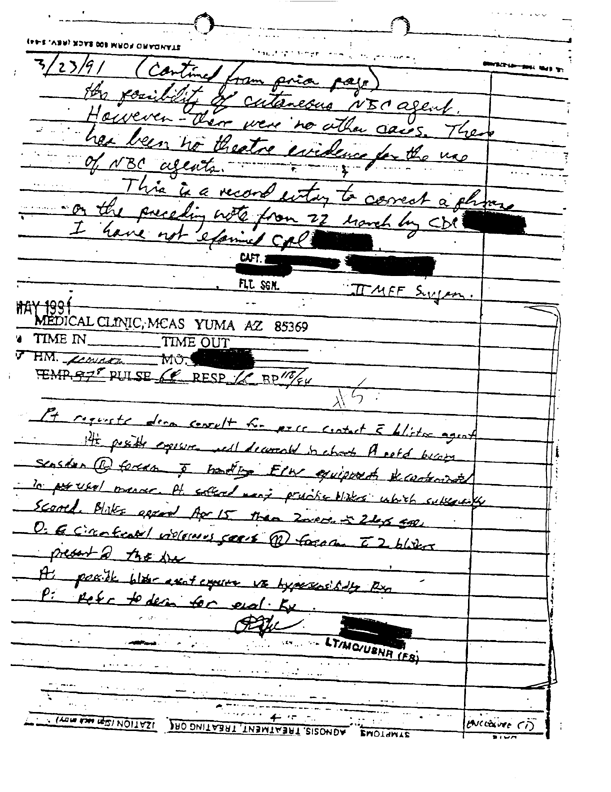 STANDARD FORM 600 BACK (REV. 5-84)
3/23/91 (continued from prior page)
the possibility of cutaneous NBC agent.
However - there were no other cases. There
has been no theatre evidence for the use
of NBC agents.
This is a record entry to correct a phrase
on the preceding note from 22 March by CDR
I have not examined Cpl
CAPT.
FLT. SGN.
II MEF Surgeon.
MAY 1991
MEDICAL CLINIC, MCAS YUMA AZ 85369
TIME IN TIME OUT
HM. MO.
TEMP. 97⁸ PULSE 68 RESP BP 118/84
Pt requests derm consult for poss contact c̄ blister agent
possible exposure well documented in chart. noted burning
sensation (R) forearm handling equipment decontaminated
in usual manner. Pt suffered many blisters which subsequently
scarred. Blisters Apr 15 then 2 days
O: circumferential scars (R) forearm c̄ 2 blisters
present @ this time
A: possible blister agent exposure vs hypersensitivity Rxn
P: Refer to derm for eval.
LT/MC/USNR (FS)
4
ENCLOSURE (1)
SYMPTOMS, DIAGNOSIS, TREATMENT, TREATING ORGANIZATION (Sign each entry)
DATE